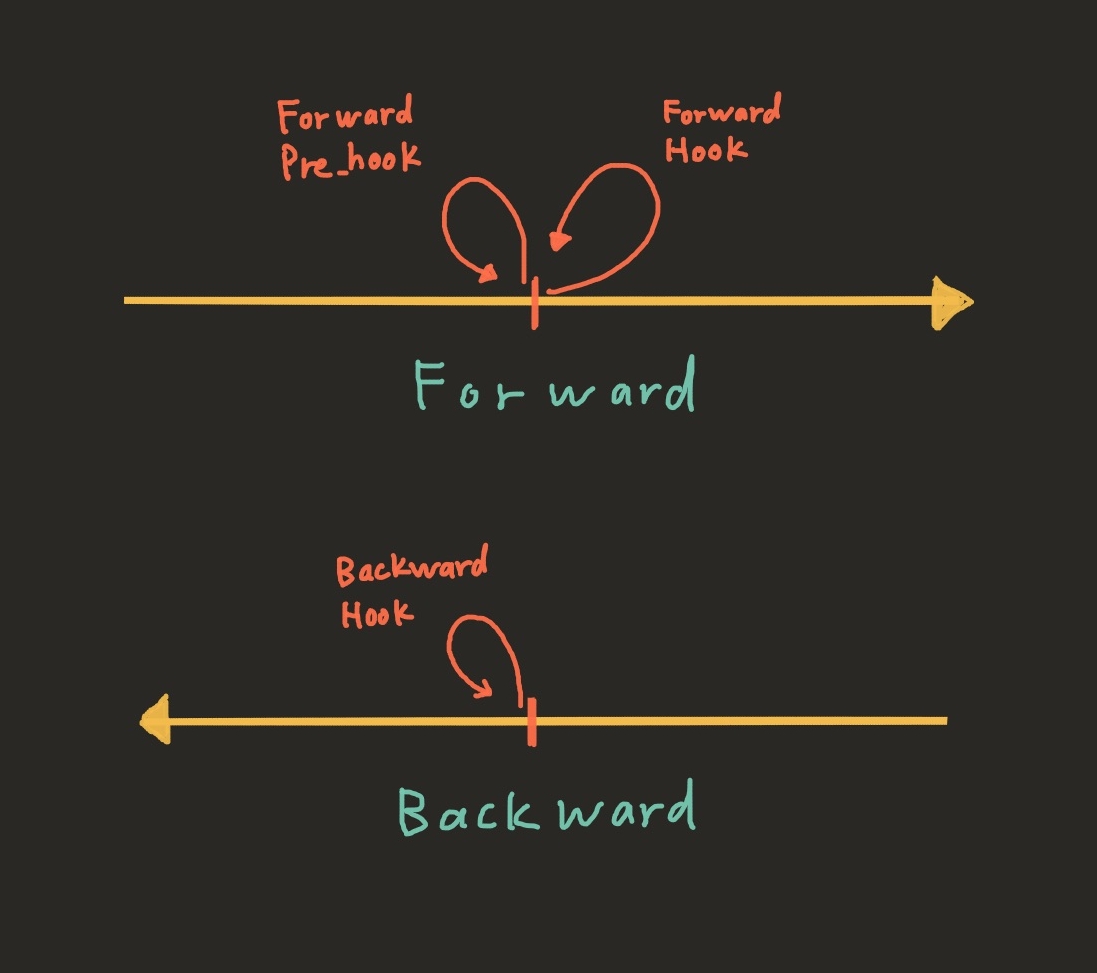 Forward
Pre_hook
Forward
Hook
Forward
Backward
Hook
Backward